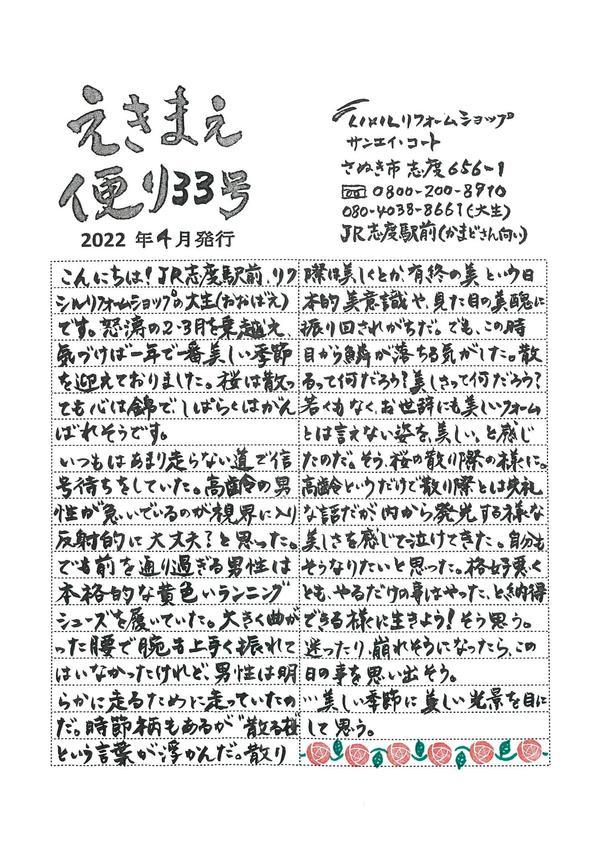 えきまえ
便り33号
2022 年4月発行
LIXILリフォームショップ
サンエイ・コート
さぬき市志度656-1
0800-200-8910
080-4038-8661(大生)
JR志度駅前(かまどさん向い)
こんにちは!JR志度駅前、リク
シルリフォームショップの大生(おおばえ)
です。怒涛の2・3月を乗越え、
気づけば一年で一番美しい季節
を迎えておりました。桜は散っ
ても心は錦で、しばらくはがん
ばれそうです。
いつもはあまり走らない道で信
号待ちをしていた。高齢の男
性が急いでいるのが視界に入り
反射的に大丈夫?と思った。
でも前を通り過ぎる男性は
本格的な黄色いランニング
シューズを履いていた。大きく曲が
った腰で腕も上手く振れて
はいなかったけれど、男性は明
らかに走るために走っていたの
だ。時節柄もあるが“散る桜”
という言葉が浮かんだ。散り
際は美しくとか、有終の美という日
本的美意識や、見た目の美醜に
振り回されがちだ。でも、この時
目から鱗が落ちる気がした。散
るって何だろう?美しさって何だろう?
若くもなく、お世辞にも美しいフォーム
とは言えない姿を、美しい、と感じ
たのだ。そう、桜の散り際の様に。
高齢というだけで散り際とは失礼
な話だが内から発光する様な
美しさを感じて泣けてきた。自分も
そうなりたいと思った。格好悪く
とも、やるだけの事はやった、と納得
できる様に生きよう!そう思う。
迷ったり、崩れそうになったら、この
日の事を思い出そう。
…美しい季節に美しい光景を目に
して思う。